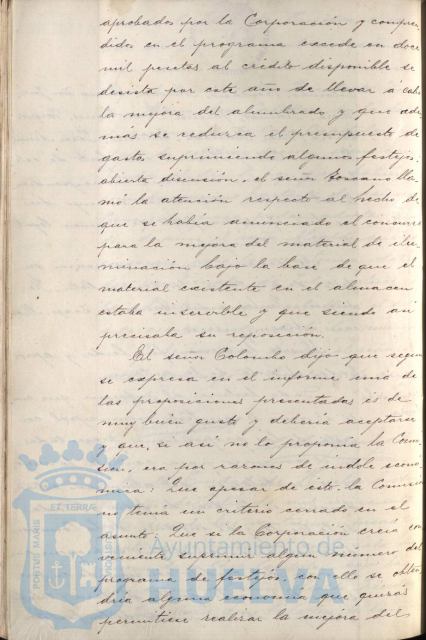 aprobados por la Corporación y compren
didos en el programa excede en doce
mil pesetas al crédito disponible se
desista por este año de llevar á cabo
la mejora del alumbrado y que ade
más se reduzca el presupuesto de
gastos suprimiendo algunos festejos.
abierta discusión, el señor Toscano lla
mó la atención respecto al hecho de
que se había anunciado el concurso
para la mejora del material de ilu
minación bajo la base de que el
material existente en el almacen
estaba inservible y que siendo asi
precisaba su reposición
El señor Colombo dijo que segun
se expresa en el informe una de
las proposiciones presentadas es de
muy buen gusto y debería aceptarse
y que, si así no lo proponia la Comi
sion, era por razones de indole econo
mica: Que apesar de esto la Comision
no tenía un criterio cerrado en el
asunto: Que si la Corporación creia con
veniente suprimir algun número del
programa de festejos, con ello se obten
dría alguna economia que quizas
permitiese realizar la mejora del
PORTUS MARIS ET TERRAE CUSTODIA
Ayuntamiento de
HUELVA